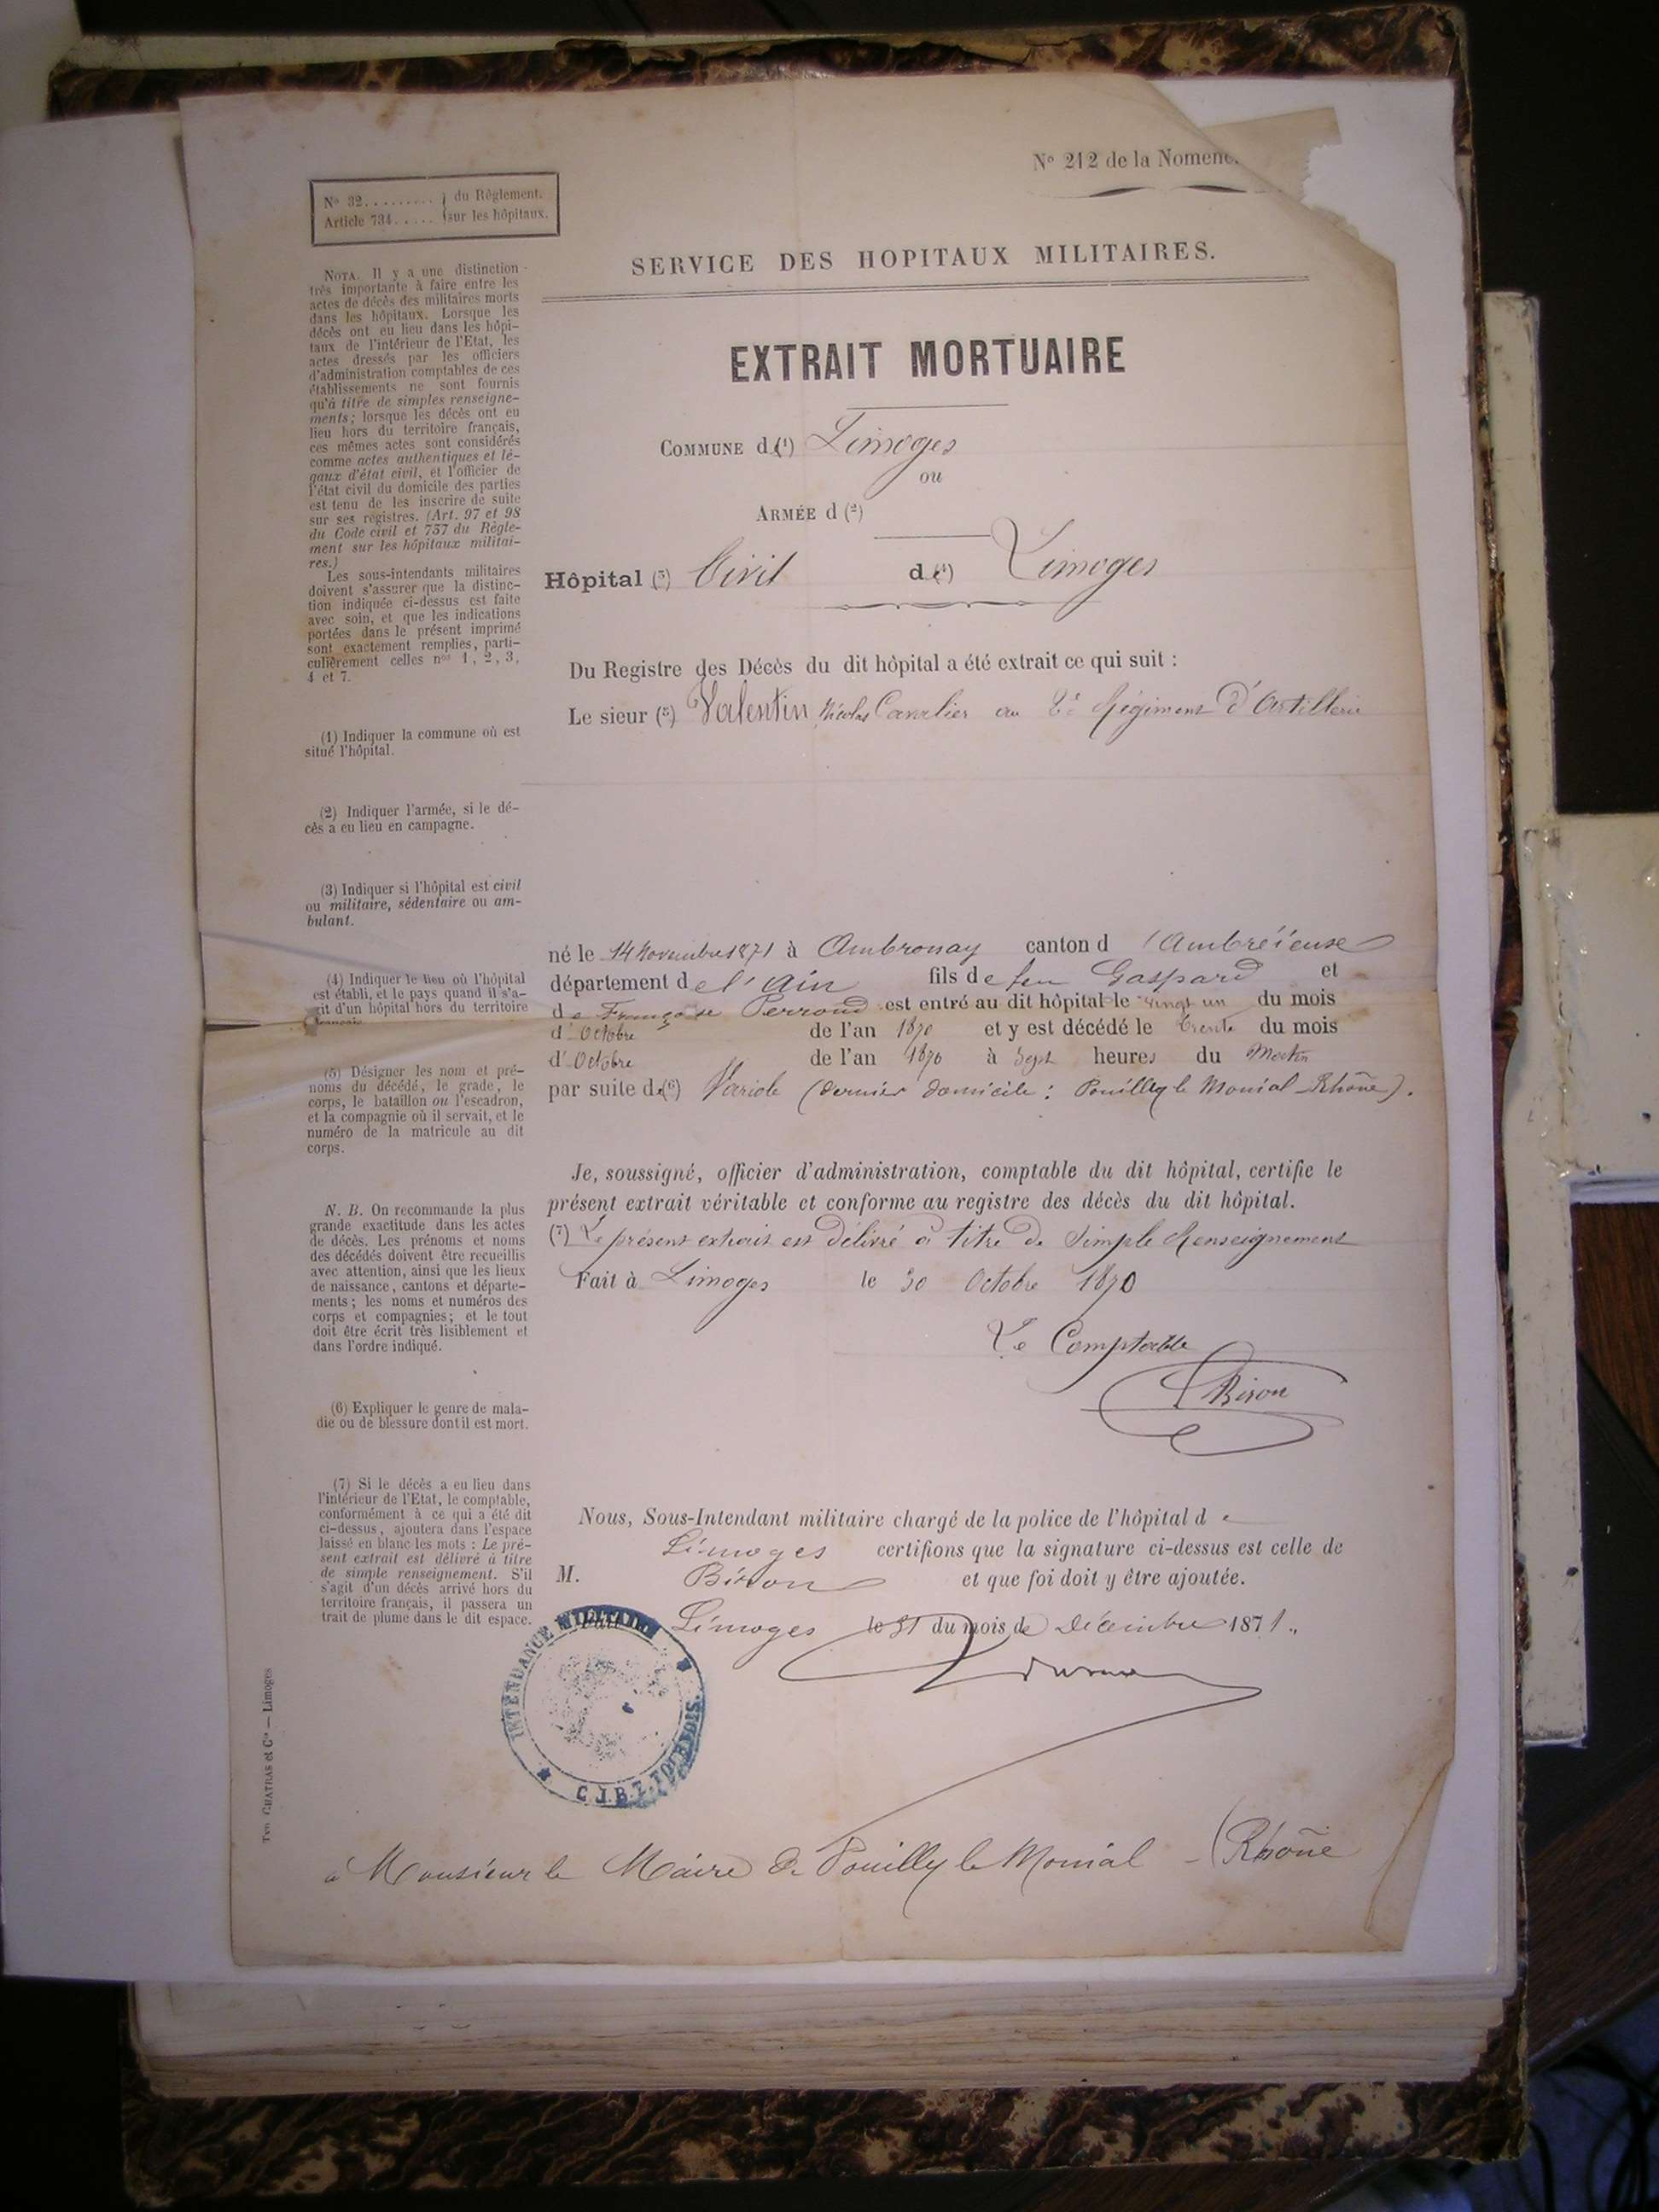 N° 212 de la Nomenc
N° 32......... du Règlement.
Article 734..... sur les hôpitaux.
SERVICE DES HOPITAUX MILITAIRES.
EXTRAIT MORTUAIRE
COMMUNE de (1) Limoges
ou
ARMÉE d (2)
Hôpital (3) Civil de (4) Limoges
Du Registre des Décès du dit hôpital a été extrait ce qui suit :
Le sieur (5) Valentin Nicolas Cavalier au 2e Régiment d'Artillerie
né le 14 Novembre 1871 à Ambronay canton d'Ambréieuse
département de l'Ain fils de feu Gaspard et
de Françoise Perroud est entré au dit hôpital le vingt un du mois
d'Octobre de l'an 1870 et y est décédé le trente du mois
d'Octobre de l'an 1870 à Sept heures du Matin
par suite de (6) Variole (dernier domicile : Pouilly le Monial Rhône).
Je, soussigné, officier d'administration, comptable du dit hôpital, certifie le
présent extrait véritable et conforme au registre des décès du dit hôpital.
(7) Le présent extrait est délivré à titre de simple Renseignement
Fait à Limoges le 30 Octobre 1870
Le Comptable
Biron
Nous, Sous-Intendant militaire chargé de la police de l'hôpital de
Limoges certifions que la signature ci-dessus est celle de
M. Biron et que foi doit y être ajoutée.
Limoges le 31 du mois de Décembre 1871.
INTENDANCE MILITAIRE
à Monsieur le Maire de Pouilly le Monial - (Rhône
NOTA. Il y a une distinction
très importante à faire entre les
actes de décès des militaires morts
dans les hôpitaux. Lorsque les
décès ont eu lieu dans les hôpi-
taux de l'intérieur de l'Etat, les
actes dressés par les officiers
d'administration comptables de ces
établissements ne sont fournis
qu'à titre de simples renseigne-
ments; lorsque les décès ont eu
lieu hors du territoire français,
ces mêmes actes sont considérés
comme actes authentiques et lé-
gaux d'état civil, et l'officier de
l'état civil du domicile des parties
est tenu de les inscrire de suite
sur ses registres. (Art. 97 et 98
du Code civil et 737 du Règle-
ment sur les hôpitaux militai-
res.)
Les sous-intendants militaires
doivent s'assurer que la distinc-
tion indiquée ci-dessus est faite
avec soin, et que les indications
portées dans le présent imprimé
sont exactement remplies, parti-
culièrement celles nos 1, 2, 3,
4 et 7.
(1) Indiquer la commune où est
situé l'hôpital.
(2) Indiquer l'armée, si le dé-
cès a eu lieu en campagne.
(3) Indiquer si l'hôpital est civil
ou militaire, sédentaire ou am-
bulant.
(4) Indiquer le lieu où l'hôpital
est établi, et le pays quand il s'a-
git d'un hôpital hors du territoire
français
(5) Désigner les nom et pré-
noms du décédé, le grade, le
corps, le bataillon ou l'escadron,
et la compagnie où il servait, et le
numéro de la matricule au dit
corps.
N. B. On recommande la plus
grande exactitude dans les actes
de décès. Les prénoms et noms
des décédés doivent être recueillis
avec attention, ainsi que les lieux
de naissance, cantons et départe-
ments; les noms et numéros des
corps et compagnies; et le tout
doit être écrit très lisiblement et
dans l'ordre indiqué.
(6) Expliquer le genre de mala-
die ou de blessure dont il est mort.
(7) Si le décès a eu lieu dans
l'intérieur de l'Etat, le comptable,
conformément à ce qui a été dit
ci-dessus, ajoutera dans l'espace
laissé en blanc les mots : Le pré-
sent extrait est délivré à titre
de simple renseignement. S'il
s'agit d'un décès arrivé hors du
territoire français, il passera un
trait de plume dans le dit espace.
Typ. CHATRAS et Cie — Limoges